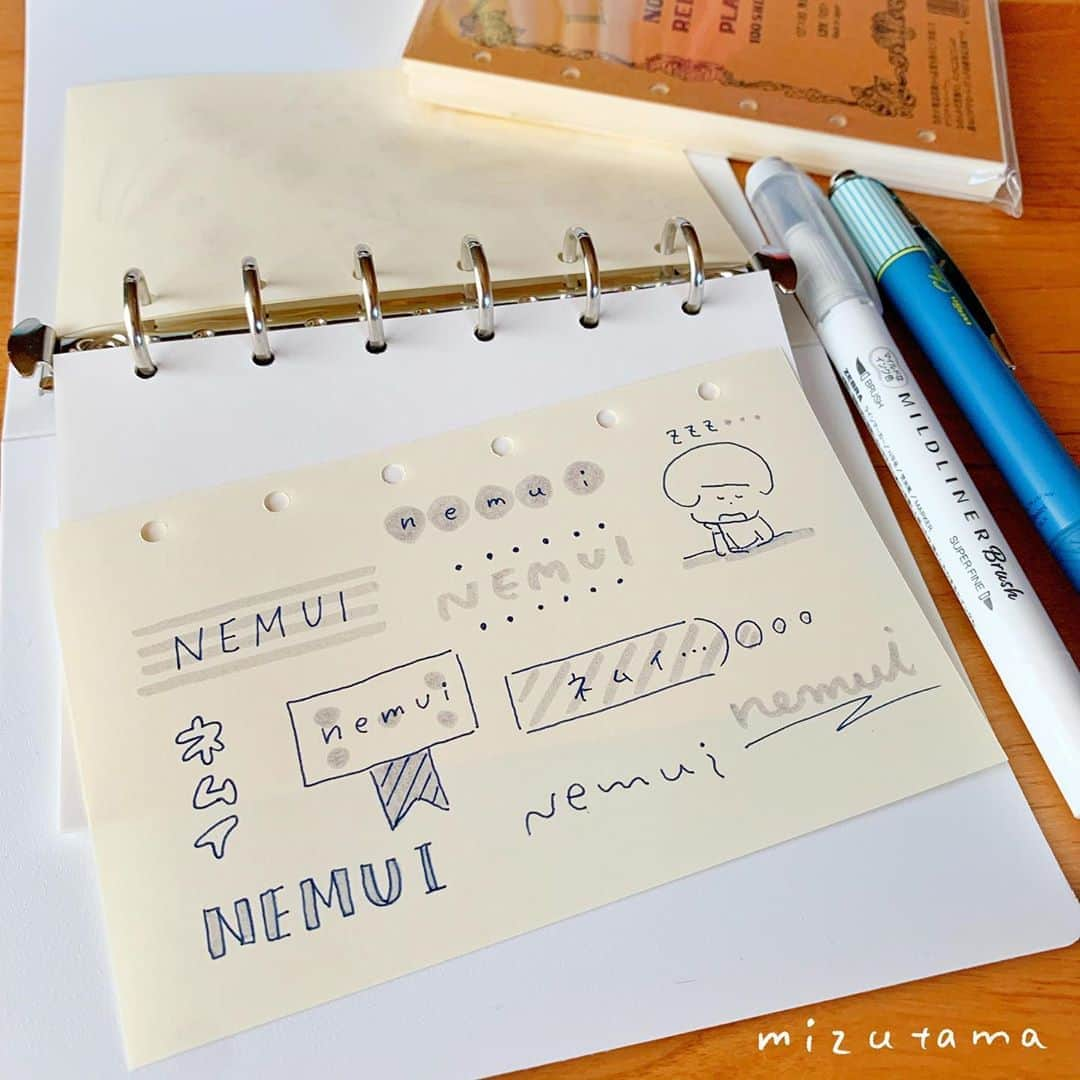 NO
RE
PLA
100 SH
zzz...
nemui
NEMUI
NEMUI
nemui
ネムイ...
nemui
ネムイ
nemui
NEMUI
マイルドな
インク色
BRUSH
ZEBRA
MILDLINER Brush
SUPER FINE
mizutama